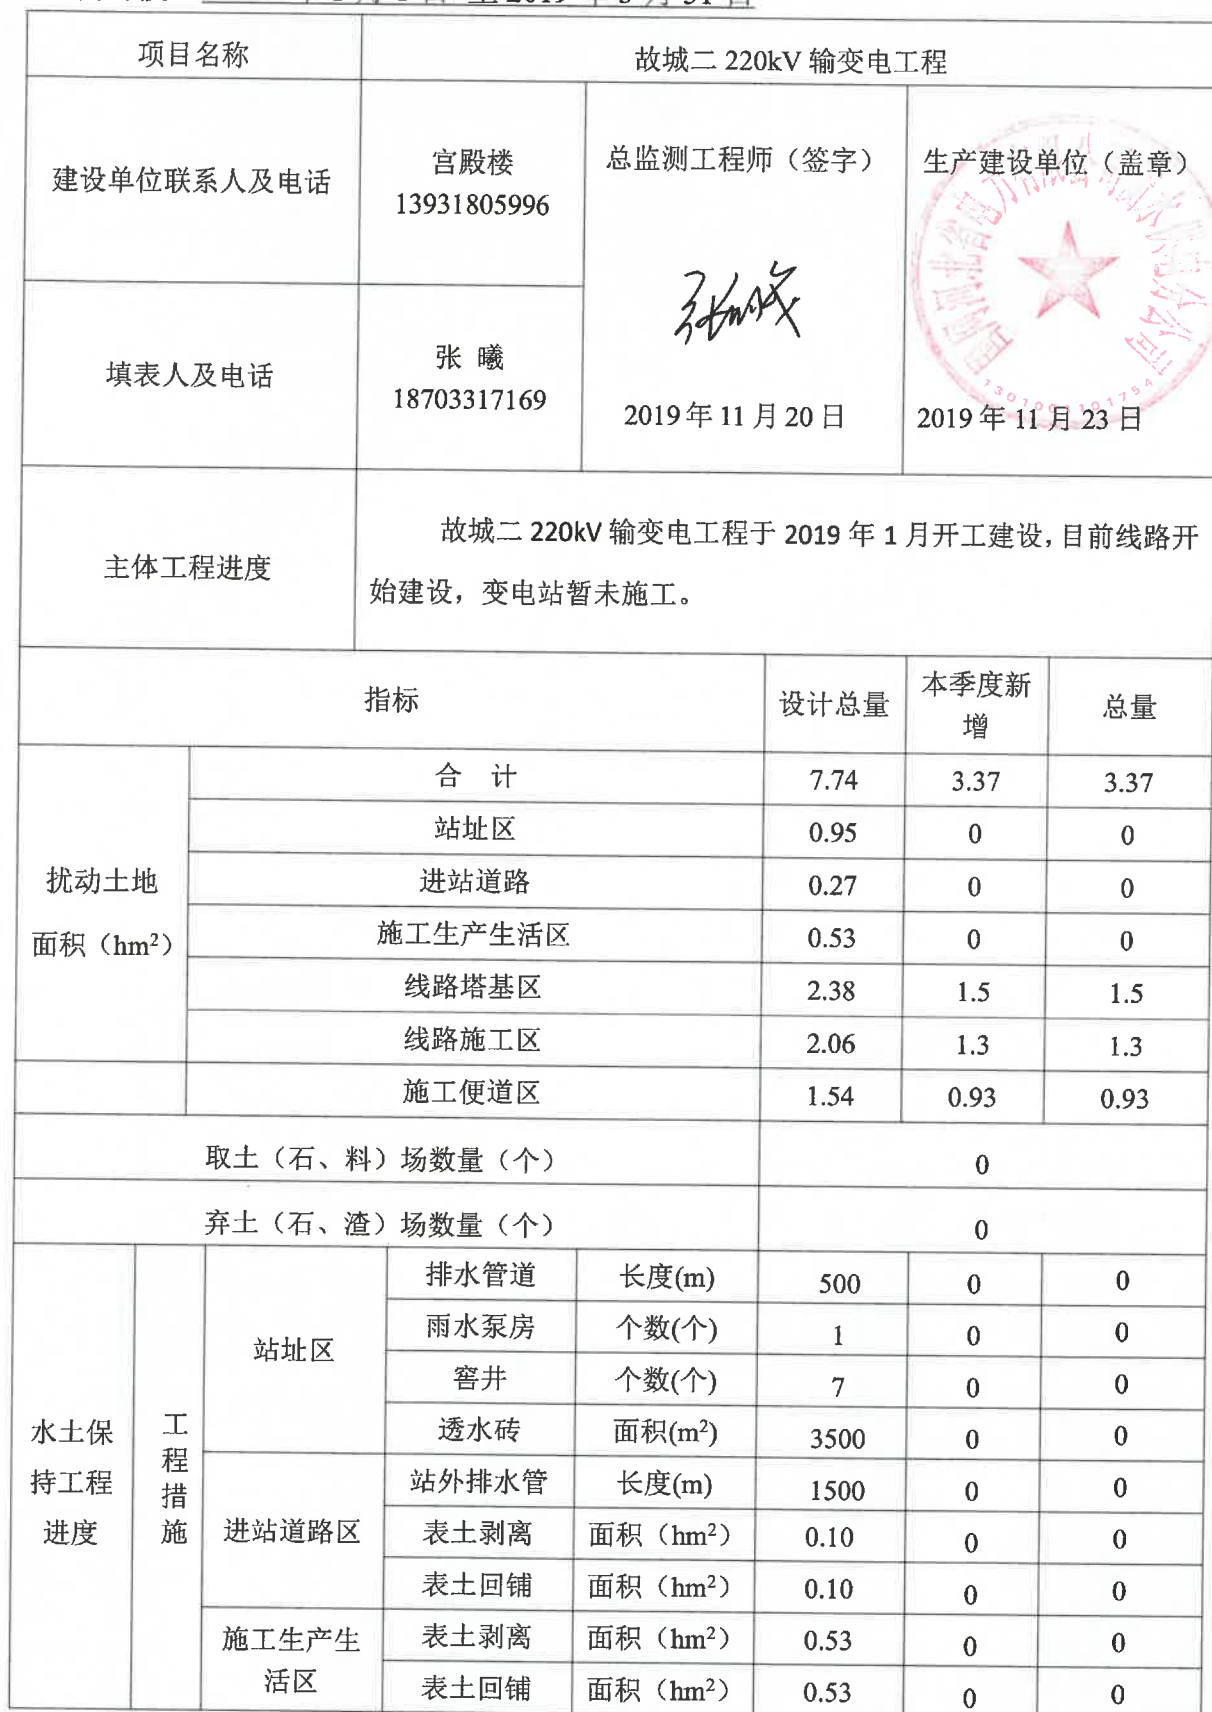 至 2019 年 3 月 31 日
项目名称 故城二 220kV 输变电工程
建设单位联系人及电话
宫殿楼
13931805996
总监测工程师（签字）
生产建设单位（盖章）
填表人及电话
张 曦
18703317169
2019 年 11 月 20 日
2019 年 11 月 23 日
主体工程进度
故城二 220kV 输变电工程于 2019 年 1 月开工建设，目前线路开
始建设，变电站暂未施工。
指标 设计总量 本季度新增 总量
扰动土地
面积（hm²）
合 计 7.74 3.37 3.37
站址区 0.95 0 0
进站道路 0.27 0 0
施工生产生活区 0.53 0 0
线路塔基区 2.38 1.5 1.5
线路施工区 2.06 1.3 1.3
施工便道区 1.54 0.93 0.93
取土（石、料）场数量（个） 0
弃土（石、渣）场数量（个） 0
水土保
持工程
进度
工程措施
站址区
排水管道 长度(m) 500 0 0
雨水泵房 个数(个) 1 0 0
窖井 个数(个) 7 0 0
透水砖 面积(m²) 3500 0 0
进站道路区
站外排水管 长度(m) 1500 0 0
表土剥离 面积（hm²） 0.10 0 0
表土回铺 面积（hm²） 0.10 0 0
施工生产生
活区
表土剥离 面积（hm²） 0.53 0 0
表土回铺 面积（hm²） 0.53 0 0